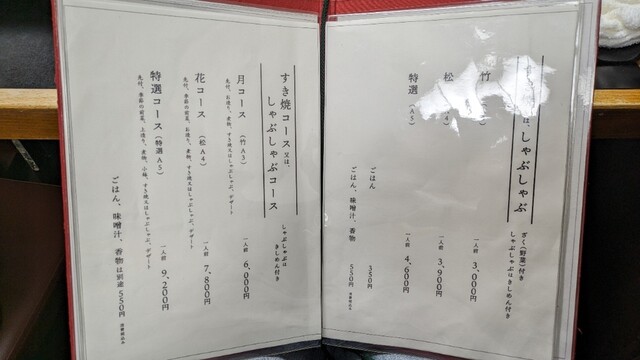 は、しゃぶしゃぶ
ざく(野菜)付き
しゃぶしゃぶはきしめん付き
竹
一人前 3,000円
松
一人前 3,900円
特選(A5)
一人前 4,600円
ごはん 350円
ごはん、味噌汁、香物 550円
すき焼コース又は、
しゃぶしゃぶコース
しゃぶしゃぶは
きしめん付き
月コース(竹A3) 一人前 6,000円
先付、お造り、煮物、すき焼又はしゃぶしゃぶ、デザート
花コース(松A4) 一人前 7,800円
先付、季節の前菜、お造り、煮物、すき焼又はしゃぶしゃぶ、デザート
特選コース(特選A5) 一人前 9,200円
先付、季節の前菜、上造り、煮物、小鉢、すき焼又はしゃぶしゃぶ、デザート
ごはん、味噌汁、香物は別途550円